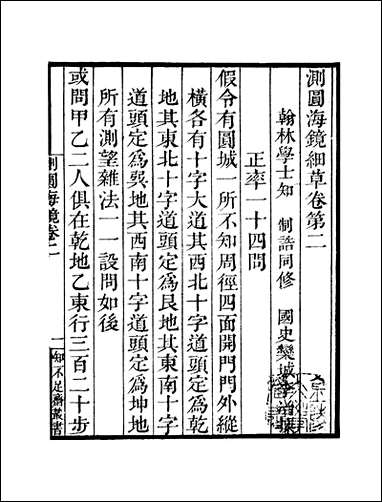 測圓海鏡細草卷第二
翰林學士知　制誥同修　國史欒城李冶撰
正率一十四問
假令有圓城一所不知周徑四面開門門外縱
橫各有十字大道其西北十字道頭定爲乾
地其東北十字道頭定爲艮地其東南十字
道頭定爲巽地其西南十字道頭定爲坤地
所有測望雜法一一設問如後
或問甲乙二人俱在乾地乙東行三百二十步
測圓海鏡卷二
一
知不足齋叢書